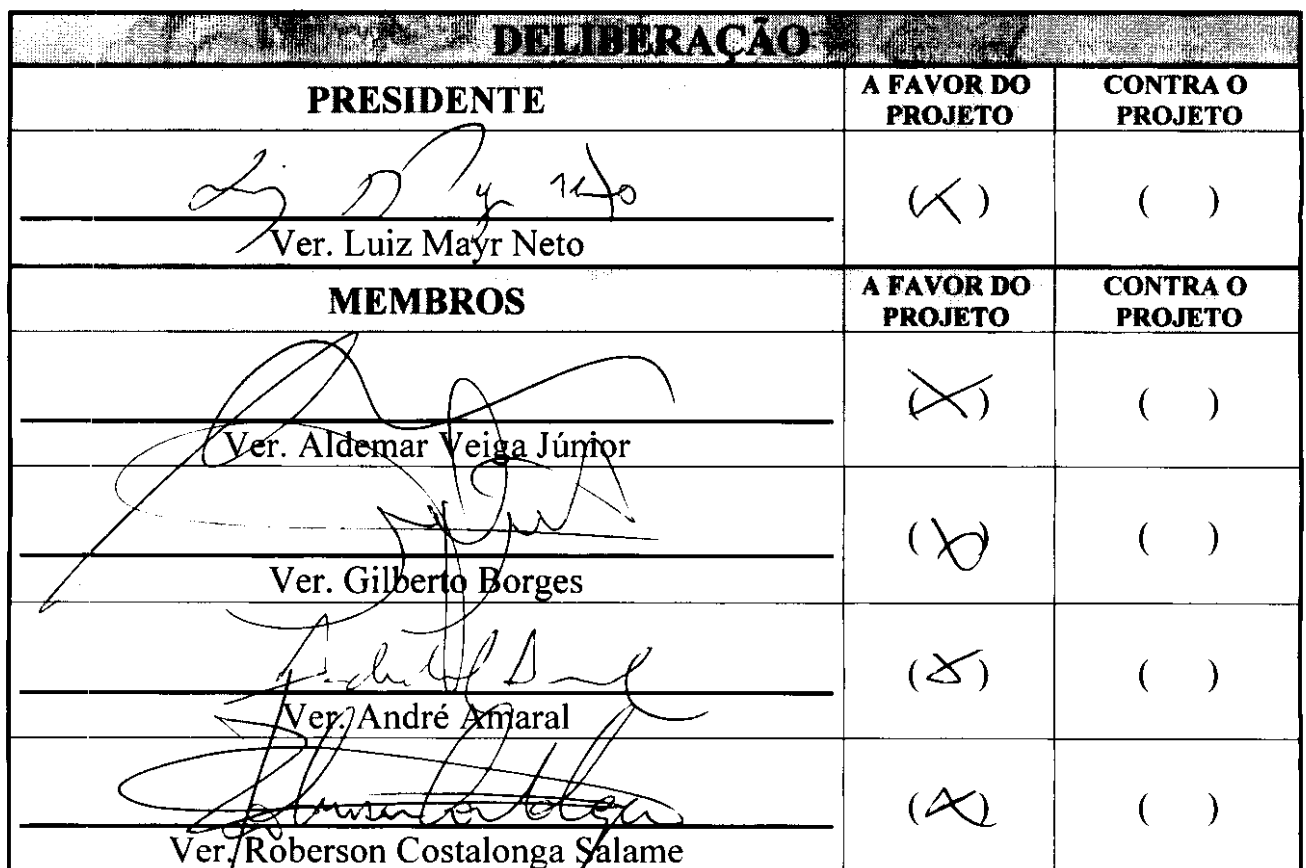 DELIBERAÇÃO
PRESIDENTE
A FAVOR DO PROJETO
CONTRA O PROJETO
Ver. Luiz Mayr Neto
(X)
( )
MEMBROS
A FAVOR DO PROJETO
CONTRA O PROJETO
Ver. Aldemar Veiga Júnior
(X)
( )
Ver. Gilberto Borges
(X)
( )
Ver. André Amaral
(X)
( )
Ver. Roberson Costalonga Salame
(X)
( )